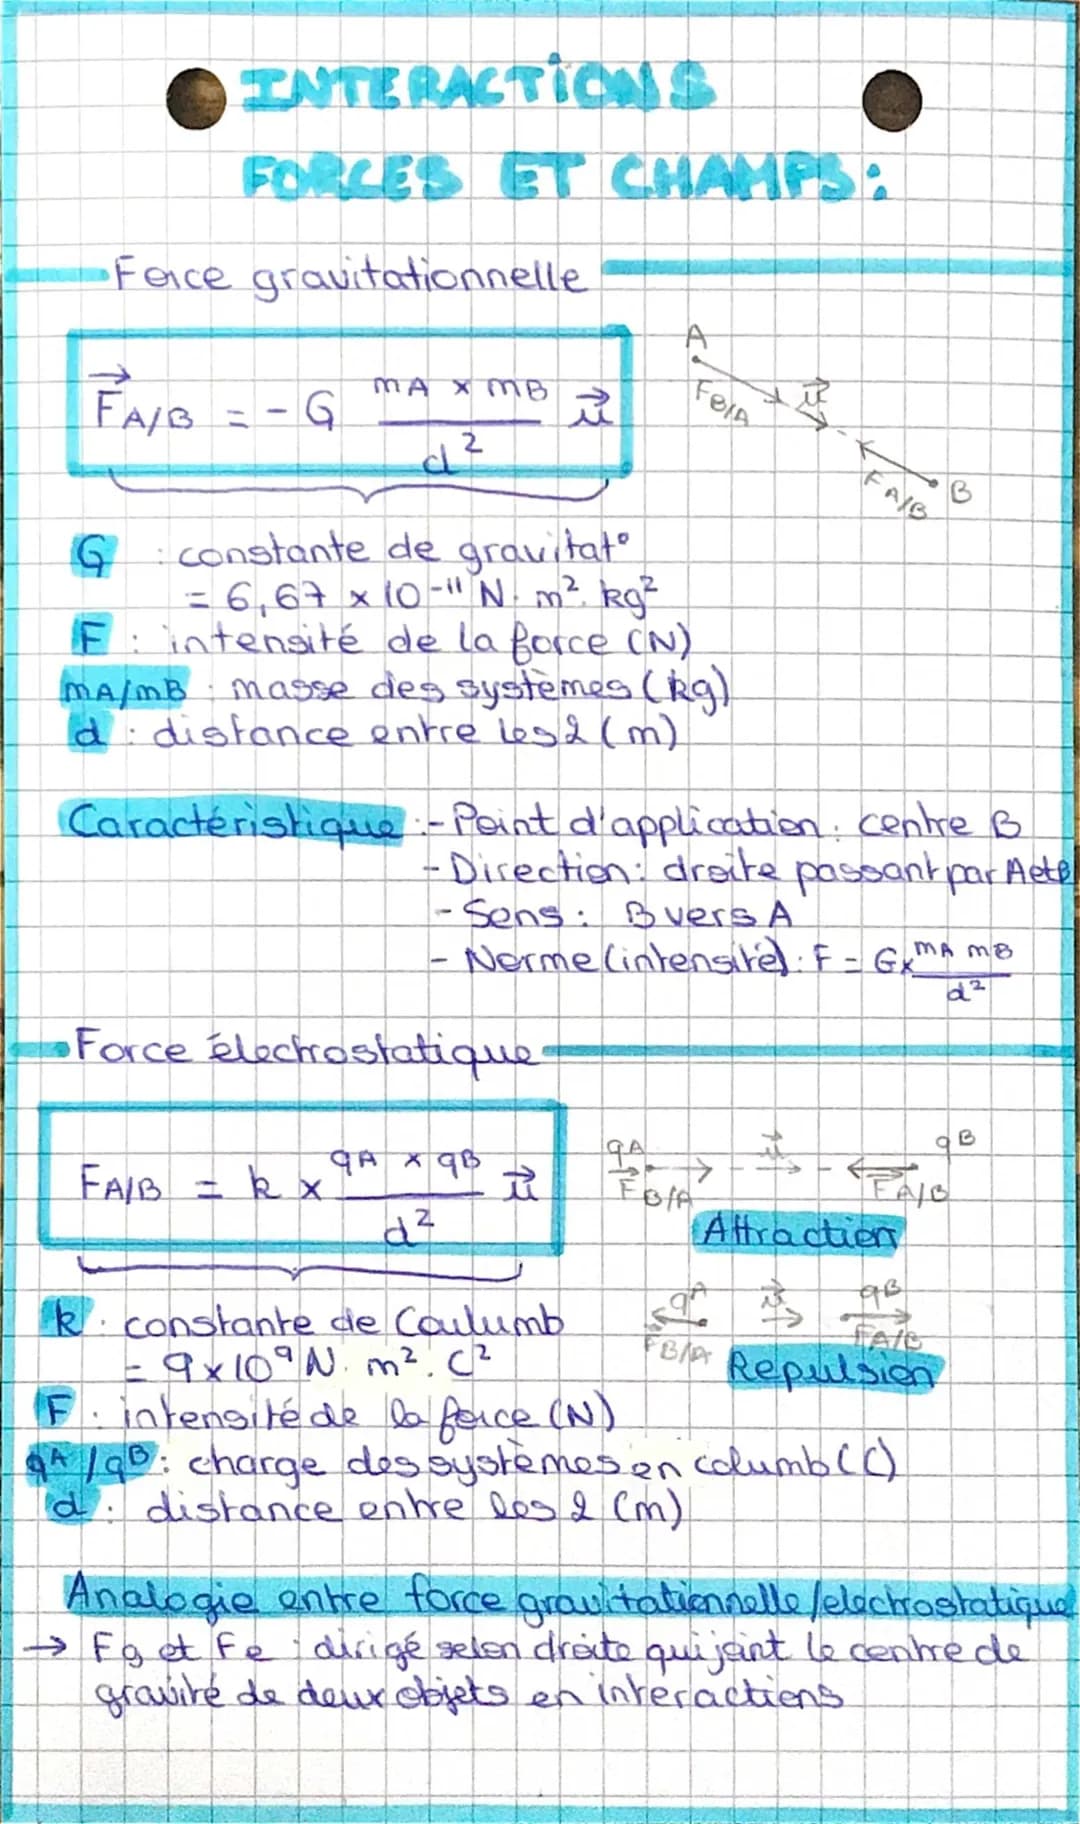 INTERACTIONS
FORCES ET CHAMPS :
Force gravitationnelle
F⃗A/B = - G mA x mB / d² u⃗
A
FB/A
u⃗
FA/B
B
G : constante de gravitat°
= 6,67 x 10-¹¹ N. m². kg²
F : intensité de la force (N)
mA/mB : masse des systèmes (kg)
d : distance entre les 2 (m)
Caractéristique :- Point d'application : centre B
- Direction : droite passant par A et B
- Sens : B vers A
- Norme (intensité) : F = G x mA mB / d²
Force électrostatique
FA/B = k x qA x qB / d² u⃗
qA
F⃗B/A
u⃗
qB
F⃗A/B
Attraction
qA
FB/A
u⃗
qB
FA/B
Repulsion
k : constante de Coulumb
= 9 x 10⁹ N. m². C²
F : intensité de la force (N)
qA / qB : charge des systèmes en columb (C)
d : distance entre les 2 (m)
Analogie entre force gravitationnelle / electrostatique
→ Fg et Fe : dirigé selon droite qui joint le centre de
gravité de deux objets en interactions